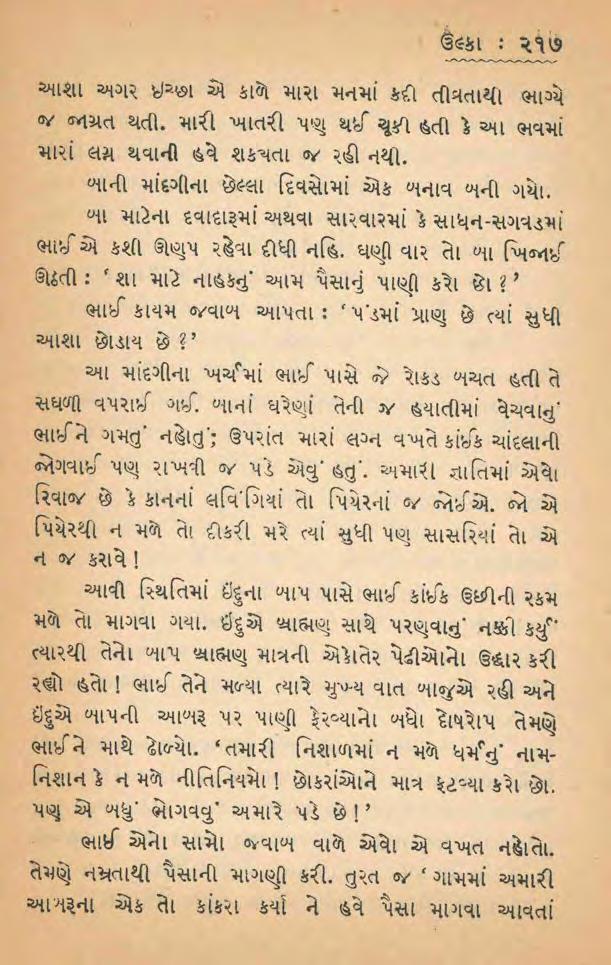 ઉલ્કા : ૨૧૭
આશા અગર ઇચ્છા એ કાળે મારા મનમાં કદી તીવ્રતાથી ભાગ્યે
જ જાગ્રત થતી. મારી ખાતરી પણ થઈ ચૂકી હતી કે આ ભવમાં
મારાં લગ્ન થવાની હવે શક્યતા જ રહી નથી.
બાની માંદગીના છેલ્લા દિવસોમાં એક બનાવ બની ગયો.
બા માટેના દવાદારૂમાં અથવા સારવારમાં કે સાધન-સગવડમાં
ભાઈએ કશી ઊણપ રહેવા દીધી નહિ. ઘણી વાર તો બા ખિજાઈ
ઊઠતી : ‘ શા માટે નાહકનું આમ પૈસાનું પાણી કરો છો ? ’
ભાઈ કાયમ જવાબ આપતા : ‘ પંડમાં પ્રાણ છે ત્યાં સુધી
આશા છોડાય છે ? ’
આ માંદગીના ખર્ચમાં ભાઈ પાસે જે રોકડ બચત હતી તે
સઘળી વપરાઈ ગઈ. બાનાં ઘરેણાં તેની જ હયાતીમાં વેચવાનું
ભાઈને ગમતું નહોતું; ઉપરાંત મારાં લગ્ન વખતે કાંઈક ચાંદલાની
જોગવાઈ પણ રાખવી જ પડે એવું હતું. અમારી જ્ઞાતિમાં એવો
રિવાજ છે કે કાનનાં લવિંગિયાં તો પિયેરનાં જ જોઈએ. જો એ
પિયેરથી ન મળે તો દીકરી મરે ત્યાં સુધી પણ સાસરિયાં તો એ
ન જ કરાવે !
આવી સ્થિતિમાં ઇંદુના બાપ પાસે ભાઈ કાંઈક ઉછીની રકમ
મળે તો માગવા ગયા. ઇંદુએ બ્રાહ્મણ સાથે પરણવાનું નક્કી કર્યું
ત્યારથી તેનો બાપ બ્રાહ્મણ માત્રની એકોતેર પેઢીઓનો ઉદ્ધાર કરી
રહ્યો હતો ! ભાઈ તેને મળ્યા ત્યારે મુખ્ય વાત બાજુએ રહી અને
ઇંદુએ બાપની આબરૂ પર પાણી ફેરવ્યાનો બધો દોષરોપ તેમણે
ભાઈને માથે ઢોળ્યો. ‘તમારી નિશાળમાં ન મળે ધર્મનું નામ-
નિશાન કે ન મળે નીતિનિયમો ! છોકરાંઓને માત્ર ફટવ્યા કરો છો.
પણ એ બધું ભોગવવું અમારે પડે છે ! ’
ભાઈ એનો સામો જવાબ વાળે એવો એ વખત નહોતો.
તેમણે નમ્રતાથી પૈસાની માગણી કરી. તુરત જ ‘ ગામમાં અમારી
આબરૂના એક તો કાંકરા કર્યા ને હવે પૈસા માગવા આવતાં